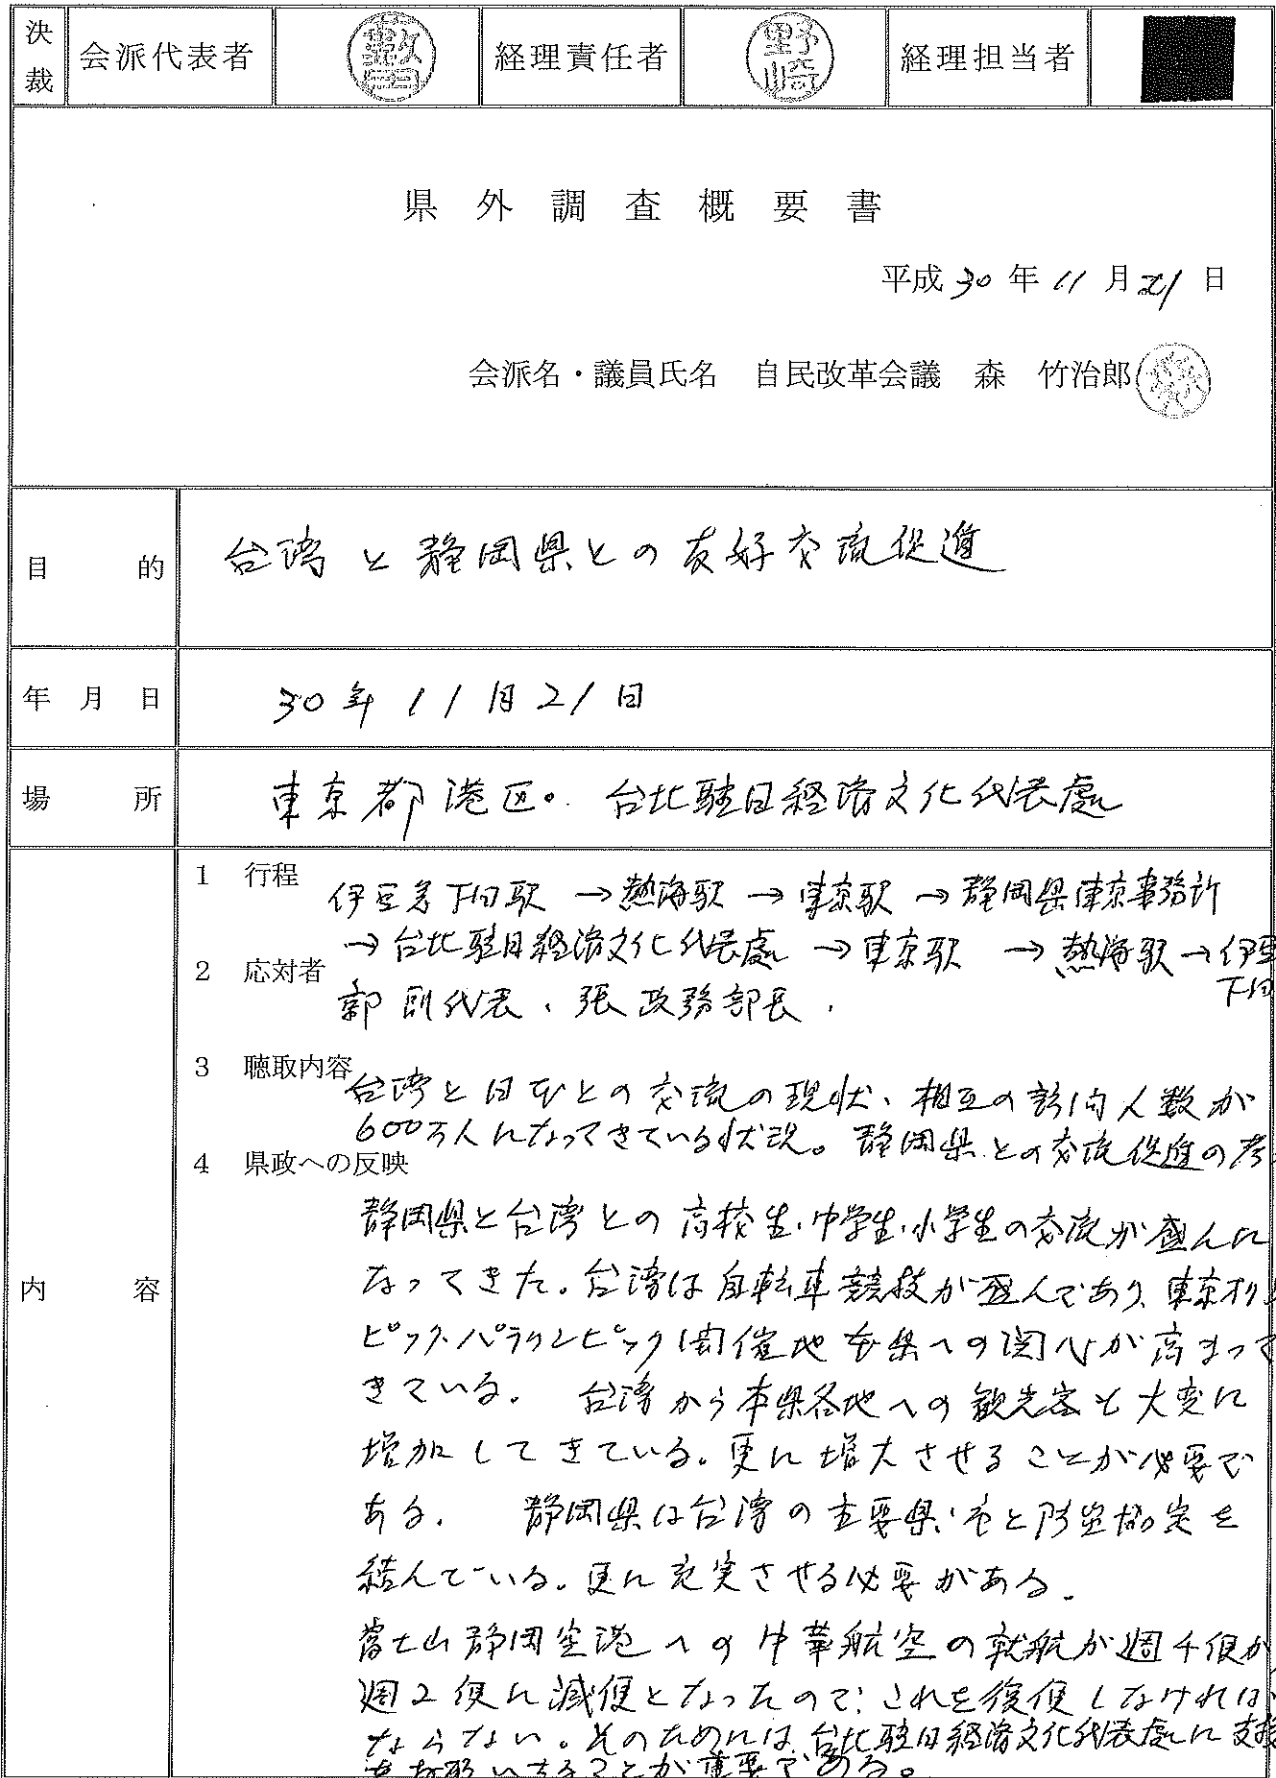 決裁 会派代表者 藪田 経理責任者 野崎 経理担当者
県外調査概要書
平成30年11月21日
会派名・議員氏名 自民改革会議 森 竹治郎
目的 台湾と静岡県との友好交流促進
年月日 30年11月21日
場所 東京都港区. 台北駐日経済文化代表處
内容
1 行程
伊豆急下田駅→熱海駅→東京駅→静岡県東京事務所
→台北駐日経済文化代表處→東京駅→熱海駅→伊豆
下田
2 応対者
郭副代表、張政務部長.
3 聴取内容
台湾と日本との交流の現状、相互の訪問人数が
600万人になってきている状況。静岡県との交流促進の考
4 県政への反映
静岡県と台湾との高校生.中学生.小学生の交流が盛んに
なってきた。台湾は自転車競技が盛んであり、東京オリン
ピック.パラリンピック開催地本県への関心が高まって
きている. 台湾から本県各地への観光客も大変に
増加してきている。更に増大させることが必要で
ある. 静岡県は台湾の主要県.市と防災協定を
結んでいる。更に充実させる必要がある.
富士山静岡空港への中華航空の就航が週4便が
週2便に減便となったので、これを復便しなければ
ならない。そのためには、台北駐日経済文化代表處に支援
をお願いすることが重要である。